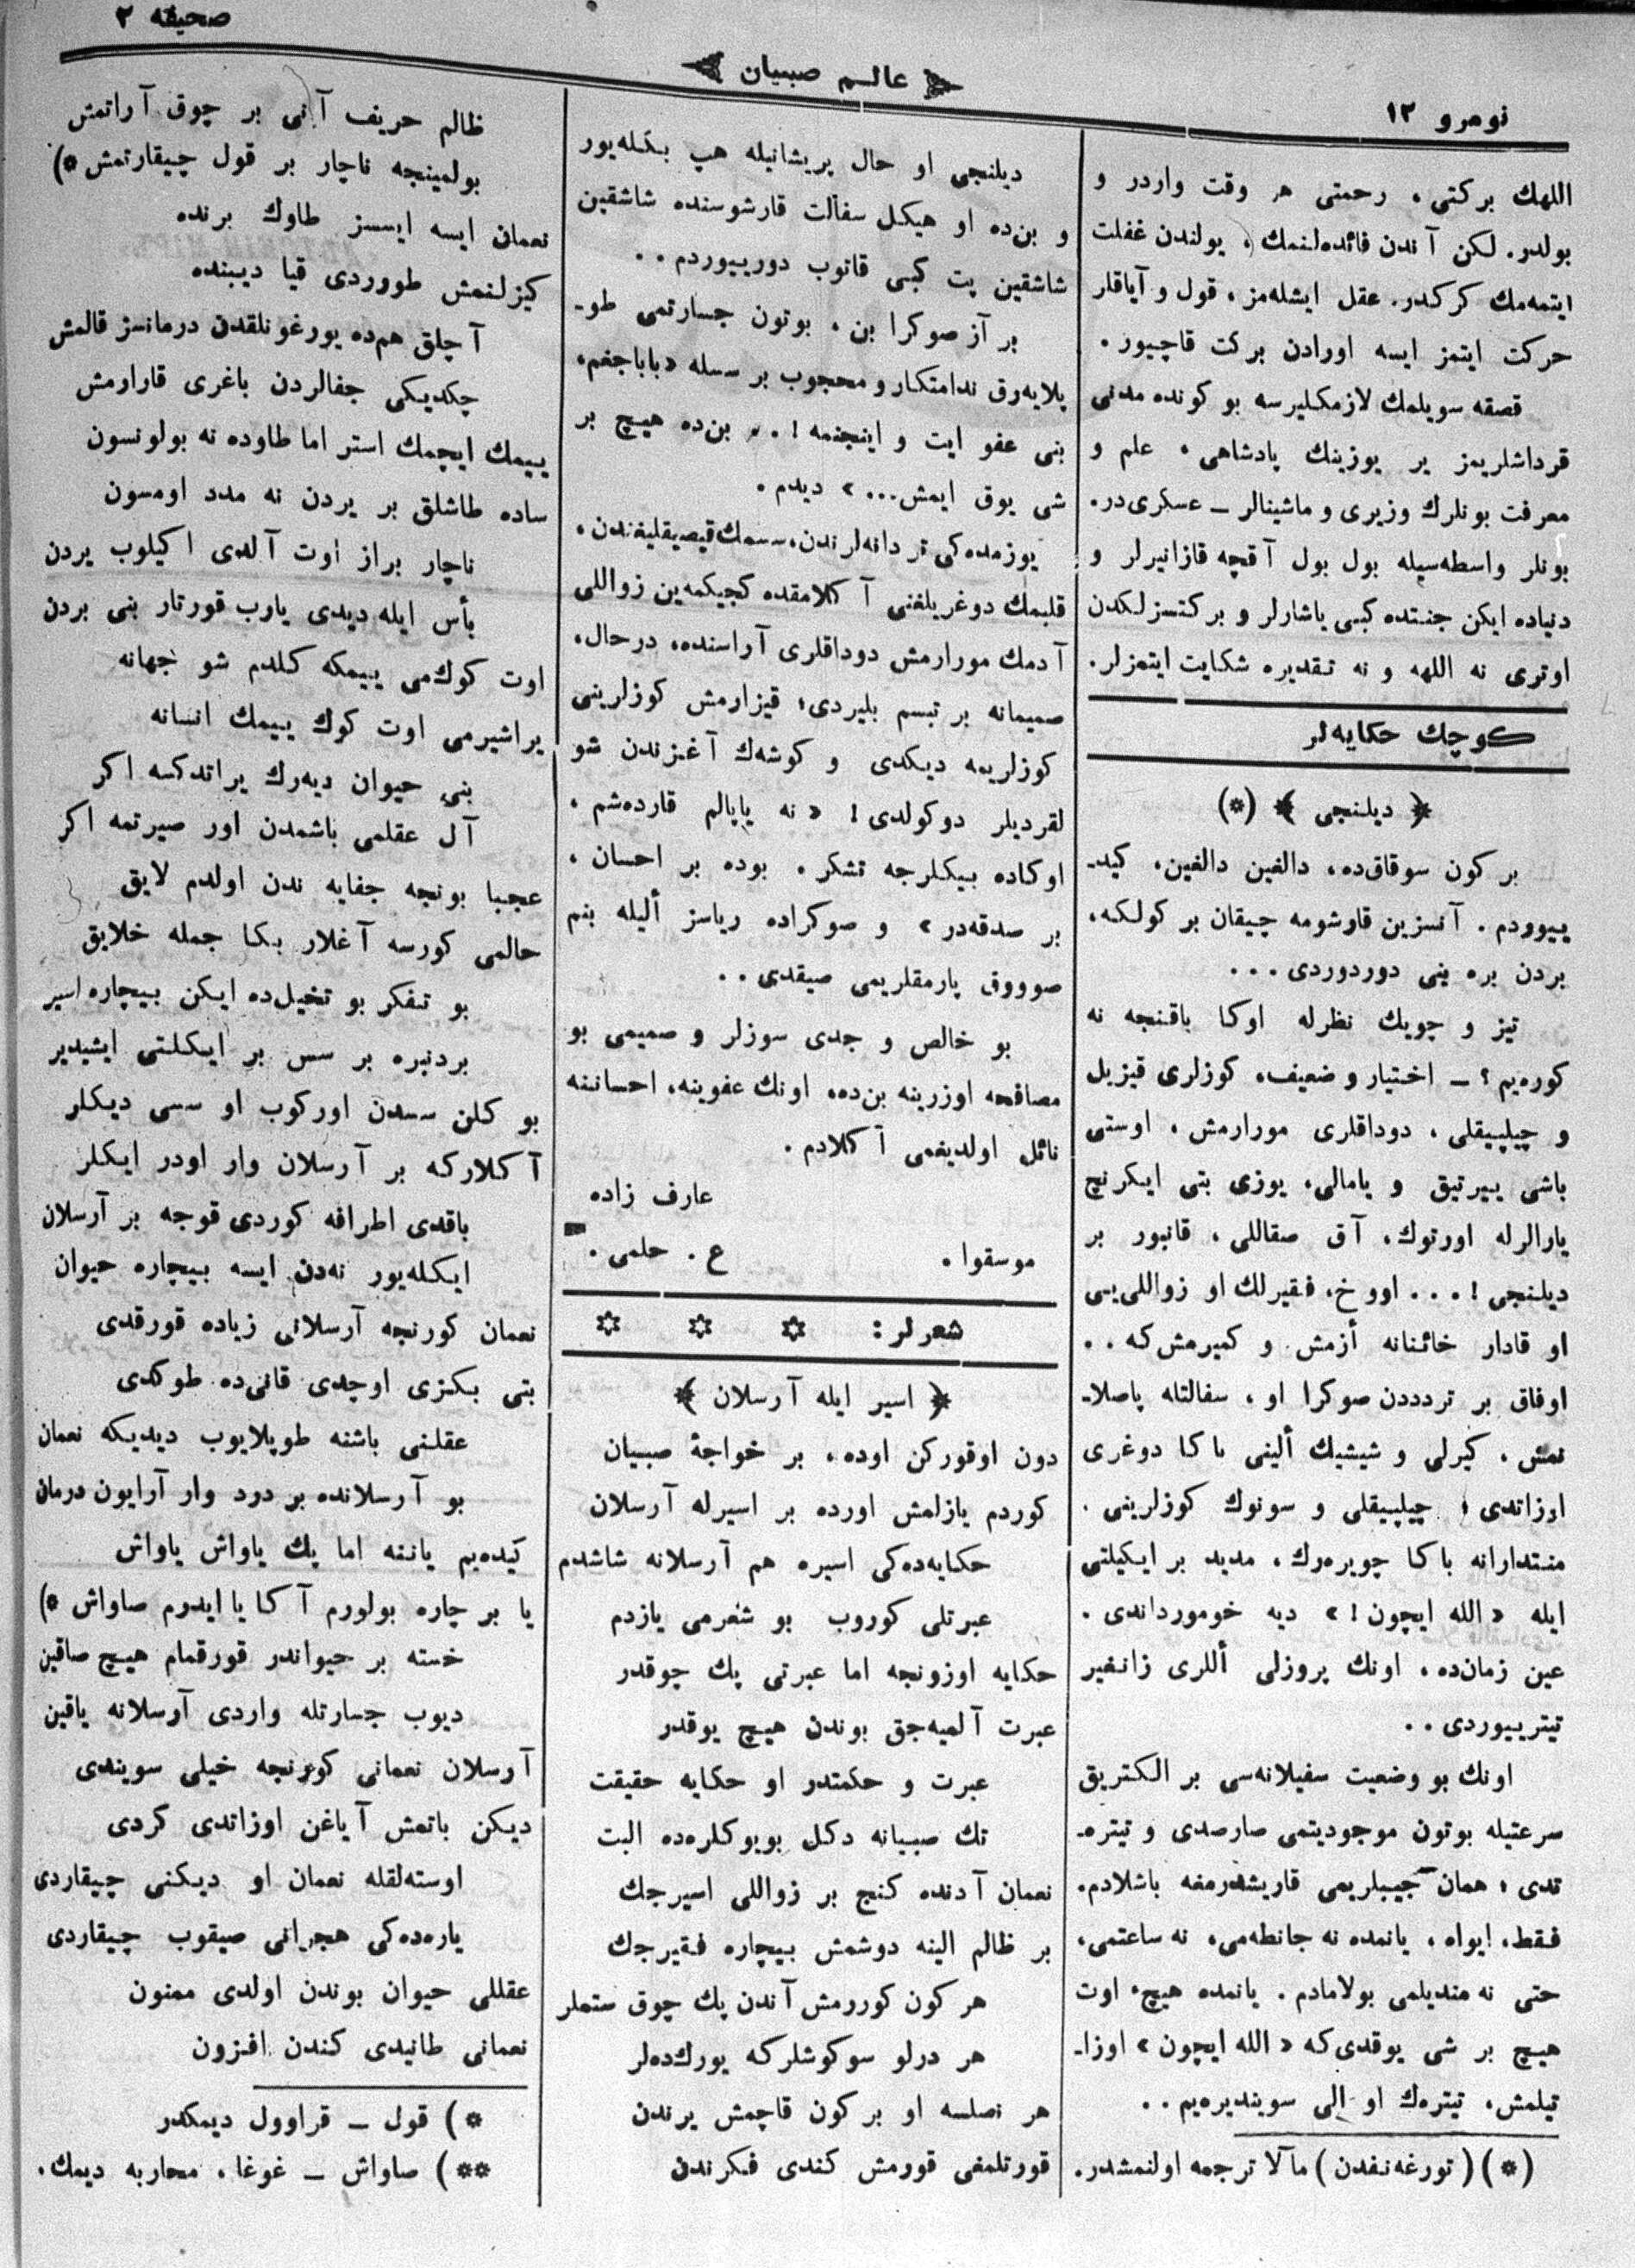 صحیفه ۲
عالم صبیان
نومرو ۱۲
اللهك بركتی، رحمتی هر وقت واردر و
بولدر. لكن آندن فائده‌لنمك، یولندن غفلت
ایتمه‌مك كركدر. عقل ایشله‌مز، قول و آیاقلر
حركت ایتمز ایسه اورادن بركت قاچیور.
قصقه سویلمك لازمكلیرسه بو كونده مدنی
قرداشلریمز یر یوزینك پادشاهی، علم و
معرفت بونلرك وزیری و ماشینالر ـ عسكری‌در.
بونلر واسطه‌سیله بول بول آقچه قازانیرلر و
دنیاده ایكن جنتده كبی یاشارلر و بركتسزلكدن
اوتری نه اللهه و نه تقدیره شكایت ایتمزلر.
كوچك حكایه‌لر
﴿ دیلنجی ﴾ (*)
بر كون سوقاق‌ده، دالغین دالغین، كیدـ
ییوردم. آنسزین قارشومه چیقان بر كولكه،
بردن بره بنی دوردوردی...
تیز و چویك نظرله اوكا باقنجه نه
كوره‌یم؟ ـ اختیار و ضعیف، كوزلری قیزیل
و چیلپیقلی، دوداقلری مورارمش، اوستی
باشی ییرتیق و یامالی، یوزی بتی ایكرنچ
یارالرله اورتوك، آق صقاللی، قانبور بر
دیلنجی!... اووخ، فقیرلك او زواللی‌یی
او قادار خائنانه أزمش و كمیرمش‌كه..
اوفاق بر ترددن صوكرا او، سفالتله پاصلاـ
نمش، كیرلی و شیشیك ألینی باكا دوغری
اوزاتدی؛ چیلپیقلی و سونوك كوزلرینی.
منتدارانه باكا چویره‌رك، مدید بر ایكیلتی
ایله «الله ایچون!» دیه خوموردانـدی.
عین زمان‌ده، اونك پروزلی أللری زانغیر
تیتریییوردی..
اونك بو وضعیت سفیلانه‌سی بر الكتریق
سرعتیله بوتون موجودیتمی صارصدی و تیتره‌ـ
تدی؛ همان جیبلریمی قاریشدرمغه باشلادم.
فقط، ایواه، یانمده نه جانطه‌می، نه ساعتمی،
حتی نه مندیلمی بولامادم. یانمده هیچ، اوت
هیچ بر شی یوقدی‌كه «الله ایچون» اوزاـ
تیلمش، تیتره‌ك او الی سویندیره‌یم..
(*) (تورغه‌نفدن) مآلا ترجمه اولنمشدر.
دیلنجی او حال پریشانیله هپ بكله‌یور
و بن‌ده او هیكل سفالت قارشوسنده شاشقین
شاشقین پت كبی قانوب دورییوردم..
بر آز صوكرا بن، بوتون جسارتمی طوـ
پلایه‌رق ندامتكار و محجوب بر سسله «باباجغم،
بنی عفو ایت و اینجنمه!.. بن‌ده هیچ بر
شی یوق ایمش...» دیدم.
یوزمده‌كی تر دانه‌لرندن، سسمك قیصیقلیغندن،
قلبمك دوغریلغنی آكلامقده كجیكمه‌ین زواللی
آدمك مورارمش دوداقلری آراسنده، درحال،
صمیمانه بر تبسم بلیردی؛ قیزارمش كوزلرینی
كوزلریمه دیكدی و كوشه‌ك آغزندن شو
لقردیلر دوكولدی! «نه یاپالم قارده‌شم،
اوكاده بیكلرجه تشكر. بوده بر احسان،
بر صدقه‌در» و صوكراده ریاسز ألیله بنم
صوووق پارمقلریمی صیقدی..
بو خالص و جدی سوزلر و صمیمی بو
مصافحه اوزرینه بن‌ده، اونك عفوینه، احساننه
نائل اولدیغمی آكلادم.
عارف زاده
موسقوا. ع. حلمی.
شعرلر:
﴿ اسیر ایله آرسلان ﴾
دون اوقوركن اوده، بر خواجهٔ صبیان
كوردم یازلمش اورده بر اسیرله آرسلان
حكایه‌ده‌كی اسیره هم آرسلانه شاشدم
عبرتلی كوروب بو شعرمی یازدم
حكایه اوزونجه اما عبرتی پك چوقدر
عبرت آلمیه‌جق بوندن هیچ یوقدر
عبرت و حكمتدر او حكایه حقیقت
تك صبیانه دكل بویوكلره‌ده البت
نعمان آدنده كنج بر زواللی اسیرجك
بر ظالم الینه دوشمش بیچاره فقیرجك
هر كون كوررمش آندن پك چوق ستملر
هر درلو سوكوشلركه یورك‌ده‌لر
هر نصلسه او بر كون قاچمش یرندن
قورتلمغی قورمش كندی فكرندن
ظالم حریف آنی بر چوق آراتمش
بولمینجه ناچار بر قول چیقارتمش *)
نعمان ایسه ایسسز طاوك برنده
كیزلنمش طووردی قیا دیبنده
آچلق هم‌ده یورغونلقدن درمانسز قالمش
چكدیكی جفالردن باغری قارارمش
ییمك ایچمك استر اما طاوده نه بولونسون
ساده طاشلق بر یردن نه مدد اومسون
ناچار براز اوت آلدی اكیلوب یردن
یأس ایله دیدی یارب قورتار بنی بردن
اوت كوك‌می ییمكه كلدم شو جهانه
یراشیرمی اوت كوك ییمك انسانه
بنی حیوان دیه‌رك یراتدكسه اكر
آل عقلمی باشمدن اور صیرتمه اكر
عجبا بونجه جفایه ندن اولدم لایق
حالمی كورسه آغلار بكا جمله خلایق
بو تفكر بو تخیل‌ده ایكن بیچاره اسیر
بردنبره بر سس بر ایكلتی ایشیدیر
بو كلن سسدن اوركوب او سسی دیكلر
آكلاركه بر آرسلان وار اودر ایكلر
باقدی اطرافه كوردی قوجه بر آرسلان
ایكله‌یور نه‌دن ایسه بیچاره حیوان
نعمان كورنجه آرسلانی زیاده قورقدی
بتی بكزی اوچدی قانی‌ده طوكدی
عقلنی باشنه طوپلایوب دیدیكه نعمان
بو آرسلانده بر درد وار آرایون درمان
كیده‌یم یاننه اما پك یاواش یاواش
یا بر چاره بولورم آكا یا ایدرم صاواش *)
خسته بر حیواندر قورقمام هیچ صاقین
دیوب جسارتله واردی آرسلانه یاقین
آرسلان نعمانی كورنجه خیلی سویندی
دیكن باتمش آیاغن اوزاتدی كردی
اوسته‌لقله نعمان او دیكنی چیقاردی
یاره‌ده‌كی هجرانی صیقوب چیقاردی
عقللی حیوان بوندن اولدی ممنون
نعمانی طانیدی كندن افزون
*) قول ـ قراوول دیمكدر
**) صاواش ـ غوغا، محاربه دیمك.